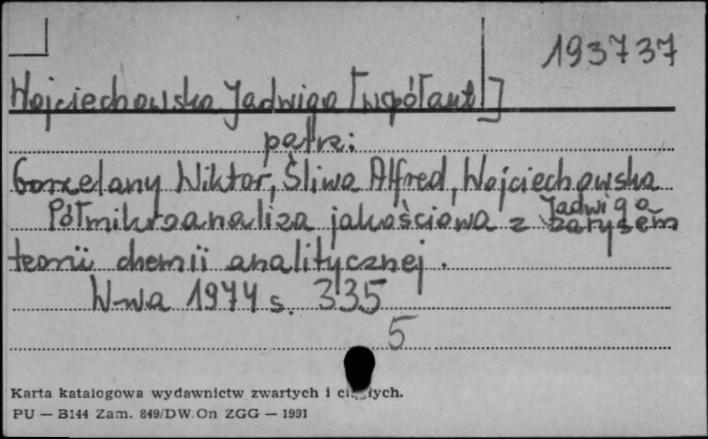 193737
Wojciechowska Jadwiga [współaut.]
patrz:
Gorzelany Wiktor, Śliwa Alfred, Wojciechowska
Jadwiga
Półmikroanaliza jakościowa z zarysem
teorii chemii analitycznej.
W-wa 1974 s. 335
5
Karta katalogowa wydawnictw zwartych i ciągłych.
PU — B144 Zam. 849/DW.On ZGG — 1991